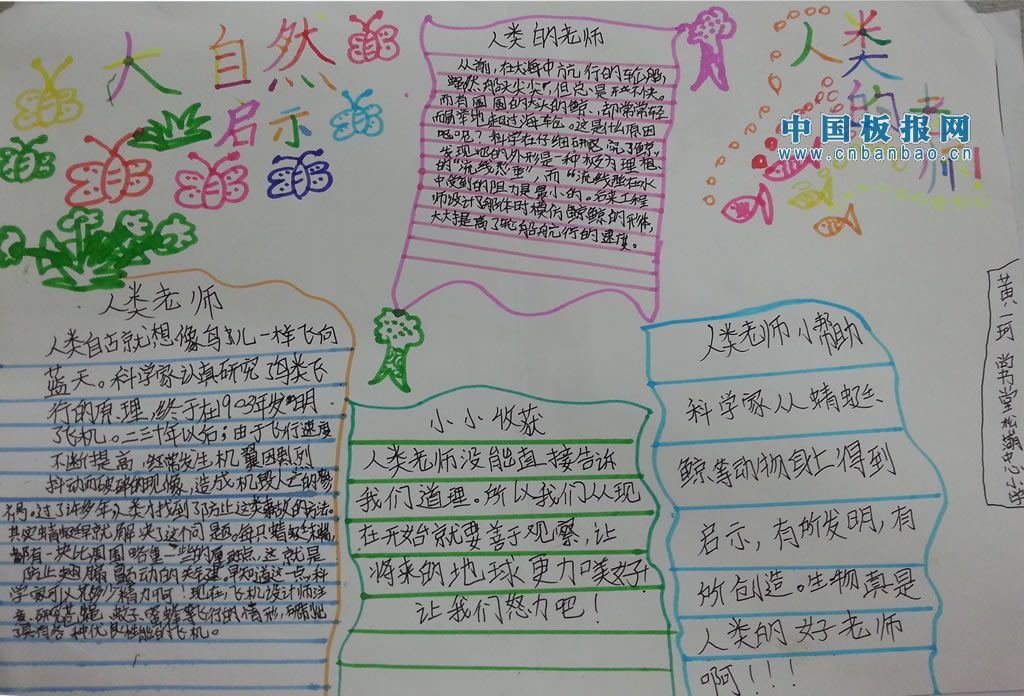 大自然
启示
人类的老师
从前，在大海中航行的轮船，
虽然"船头尖尖"，但总是开不快。
而有圆圆的大头的鲸，却常常轻
而易举地超过海轮。这是什么原因
呢？科学在仔细研究了鲸，
发现它的外形是一种极为理想
的"流线体型"，而"流线型在水
中受到的阻力是最小的。后来工程
师设计船体时模仿鲸的形体，
大大提高了轮船航行的速度。
人类
的老
师
中国板报网
www.cnbanbao.cn
人类老师
人类自古就想像鸟儿一样飞向
蓝天。科学家认真研究了鸟类飞
行的原理，终于在1903年发明
了飞机。二三十年以后；由于飞行速度
不断提高，经常发生机翼因剧烈
抖动而破碎的现像，造成机毁人亡的惨
祸。过了许多年人类才找到了防止这类事故的方法。
其实蜻蜓早就解决了这个问题。每只蜻蜓的翅膀
都有一块比周围略重一些的厚斑点，这就是
防止翅膀颤动的关键。早知道这一点，科
学家可以少精力间！现在，飞机设计师注
意研究苍蝇、蚊子、蜜蜂等飞行的情形，研制出
了具有各种优良性能的飞机。
小小收获
人类老师没能直接告诉
我们道理。所以我们从现
在开始就要善于观察，让
将来的地球更力口美好！
让我们努力吧！
人类老师小帮助
科学家从蜻蜓、
鲸等动物身上得到
启示，有所发明，有
所创造。生物真是
人类的好老师
啊！！！
黄一珂 尚书堂松湖中心小学